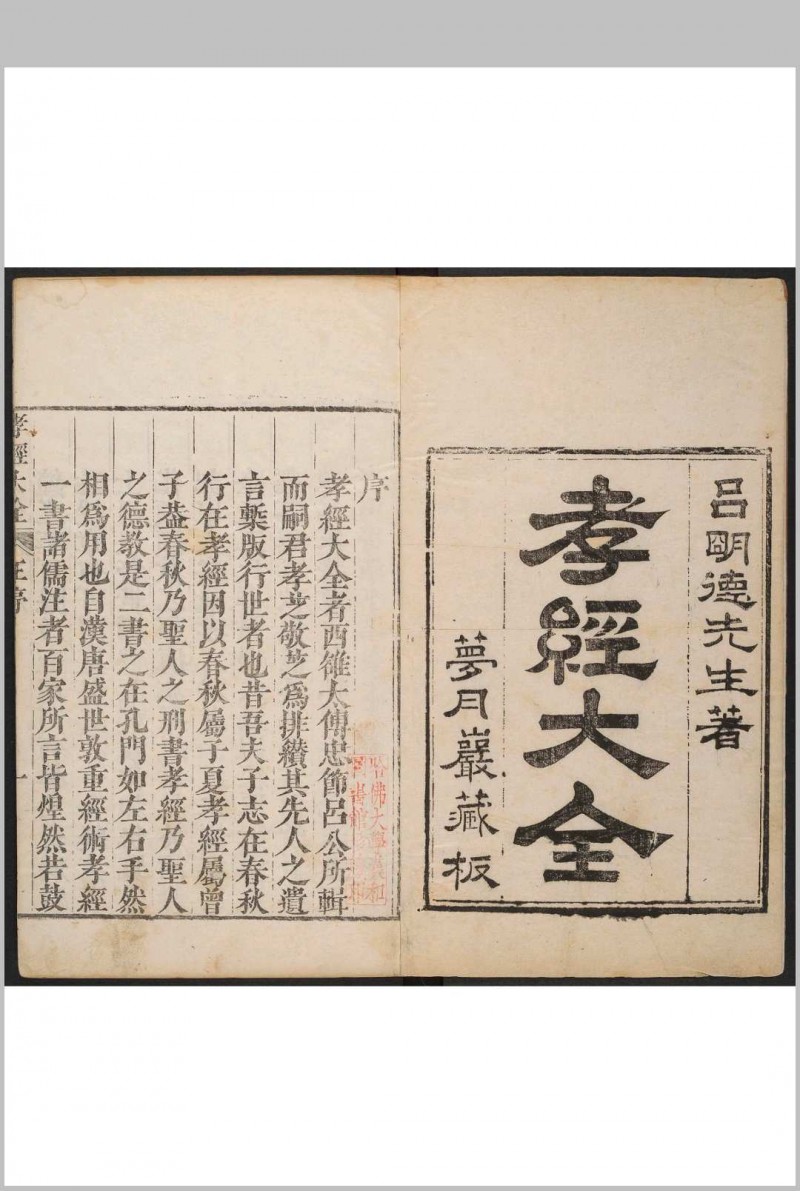 呂明德先生著
孝經大全
夢月巖藏板
序
孝經大全者西雒太傅忠節呂公所輯
而嗣君孝芝敬芝為排纘其先人之遺
言槧版行世者也昔吾夫子志在春秋
行在孝經因以春秋屬子夏孝經屬曾
子葢春秋乃聖人之刑書孝經乃聖人
之德教是二書之在孔門如左右手然
相為用也自漢唐盛世敦重經術孝經
一書諸儒注者百家所言皆煌然若鼓
孝經大全
序
一
哈佛大學漢和
圖書館